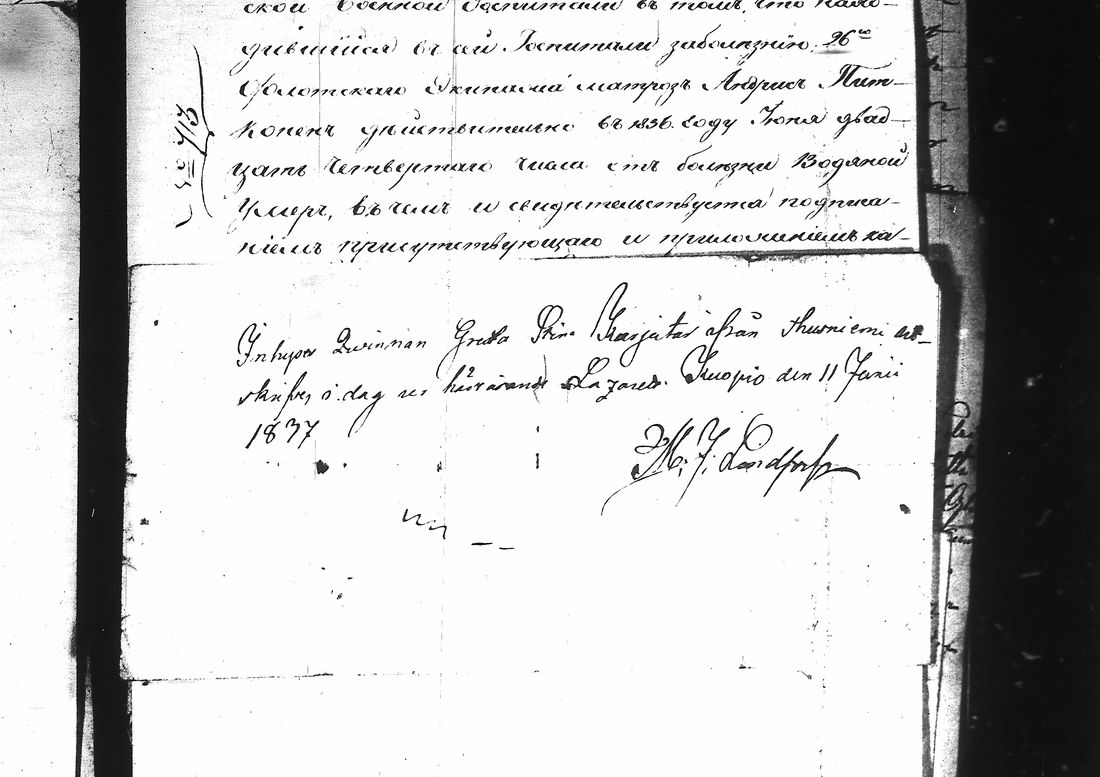 ской военной Госпитали въ томъ, что нахо-
дившiйся въ ай Госпитали заболѣзнiю, 26го
Флотскаго Экипажа матрозъ Андрисъ Пит-
коненъ дѣйствительно въ 1836. году Iюня двад-
цать четвертаго числа отъ болѣзни Водяной
Умеръ, въ чемъ и свидѣтельствуется подписа-
нiемъ присутствующаго и приложенiемъ ка-
№ 713
Inhyses Qvinnan Greta Stina Karjatar ifrån Thusniemi ut-
skrifves i dag ur härvarande Lazarett. Kuopio den 11 Junii
1837
M. J. Lindfors